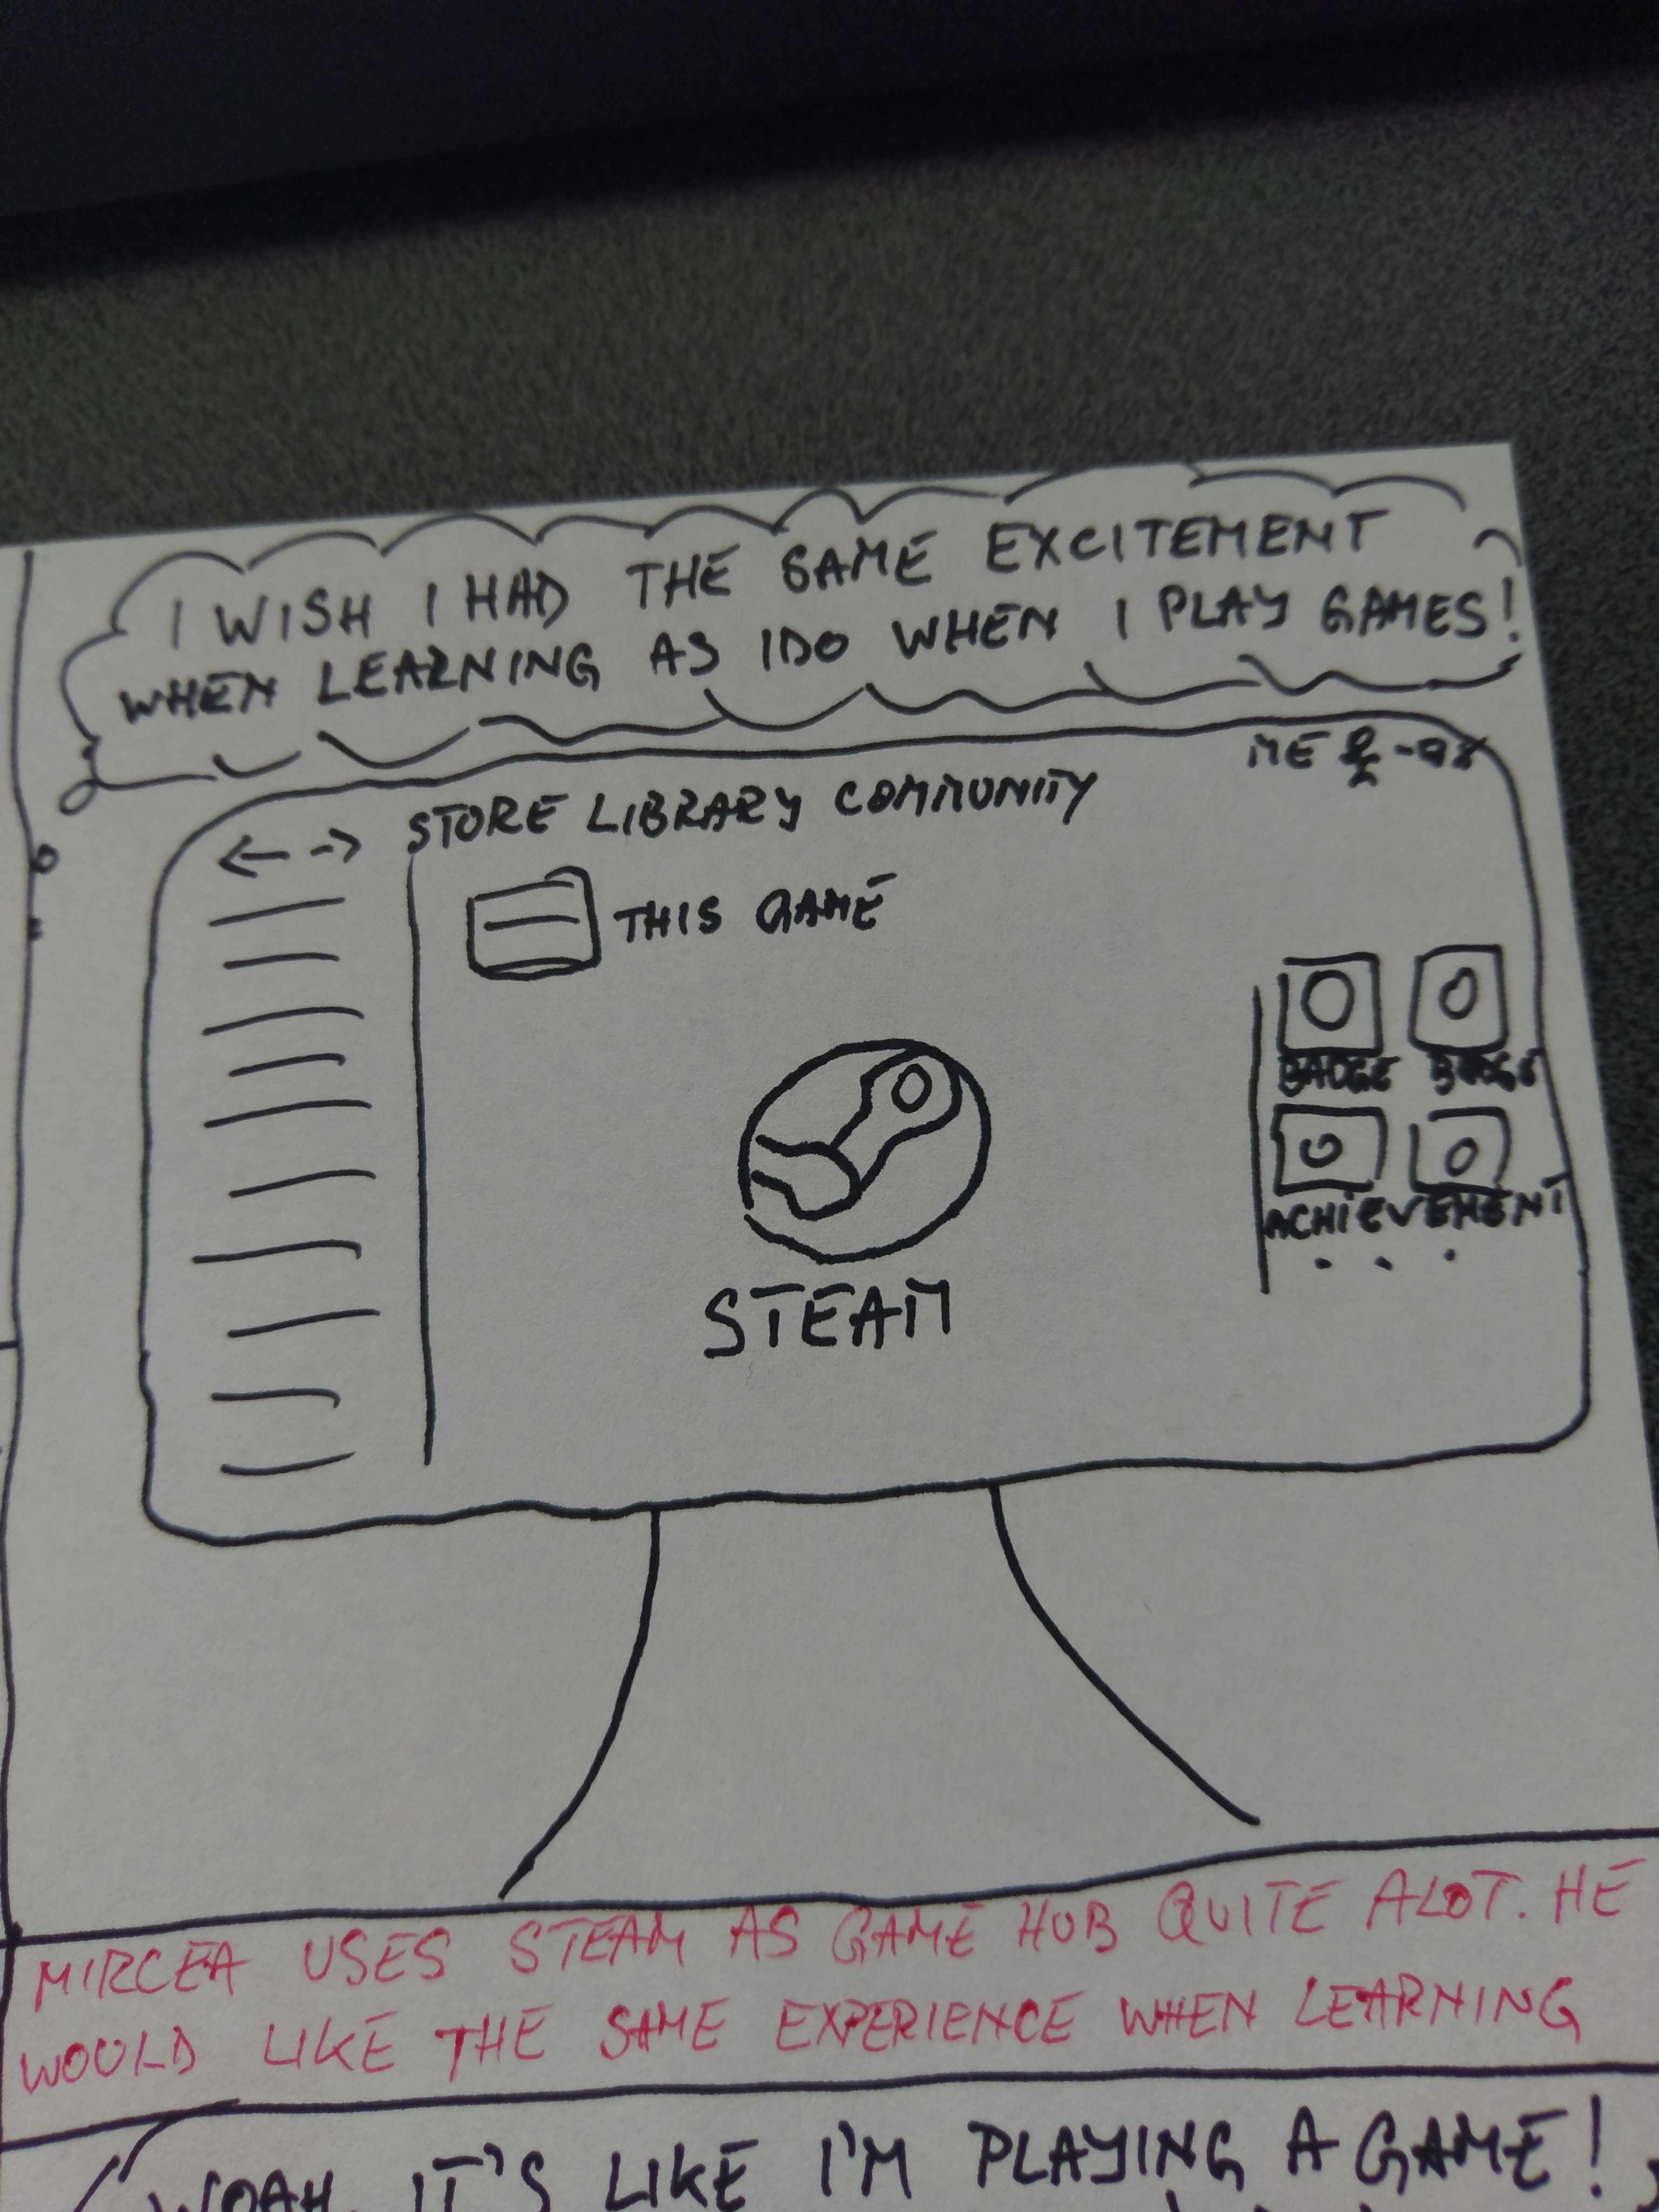 I WISH I HAD THE SAME EXCITEMENT
WHEN LEARNING AS I DO WHEN I PLAY GAMES!
ME
STORE LIBRARY COMMUNITY
THIS GAME
BADGE BADGE
ACHIEVEMENT
...
STEAM
MIRCEA USES STEAM AS GAME HUB QUITE ALOT. HE
WOULD LIKE THE SAME EXPERIENCE WHEN LEARNING
WOAH, IT'S LIKE I'M PLAYING A GAME!